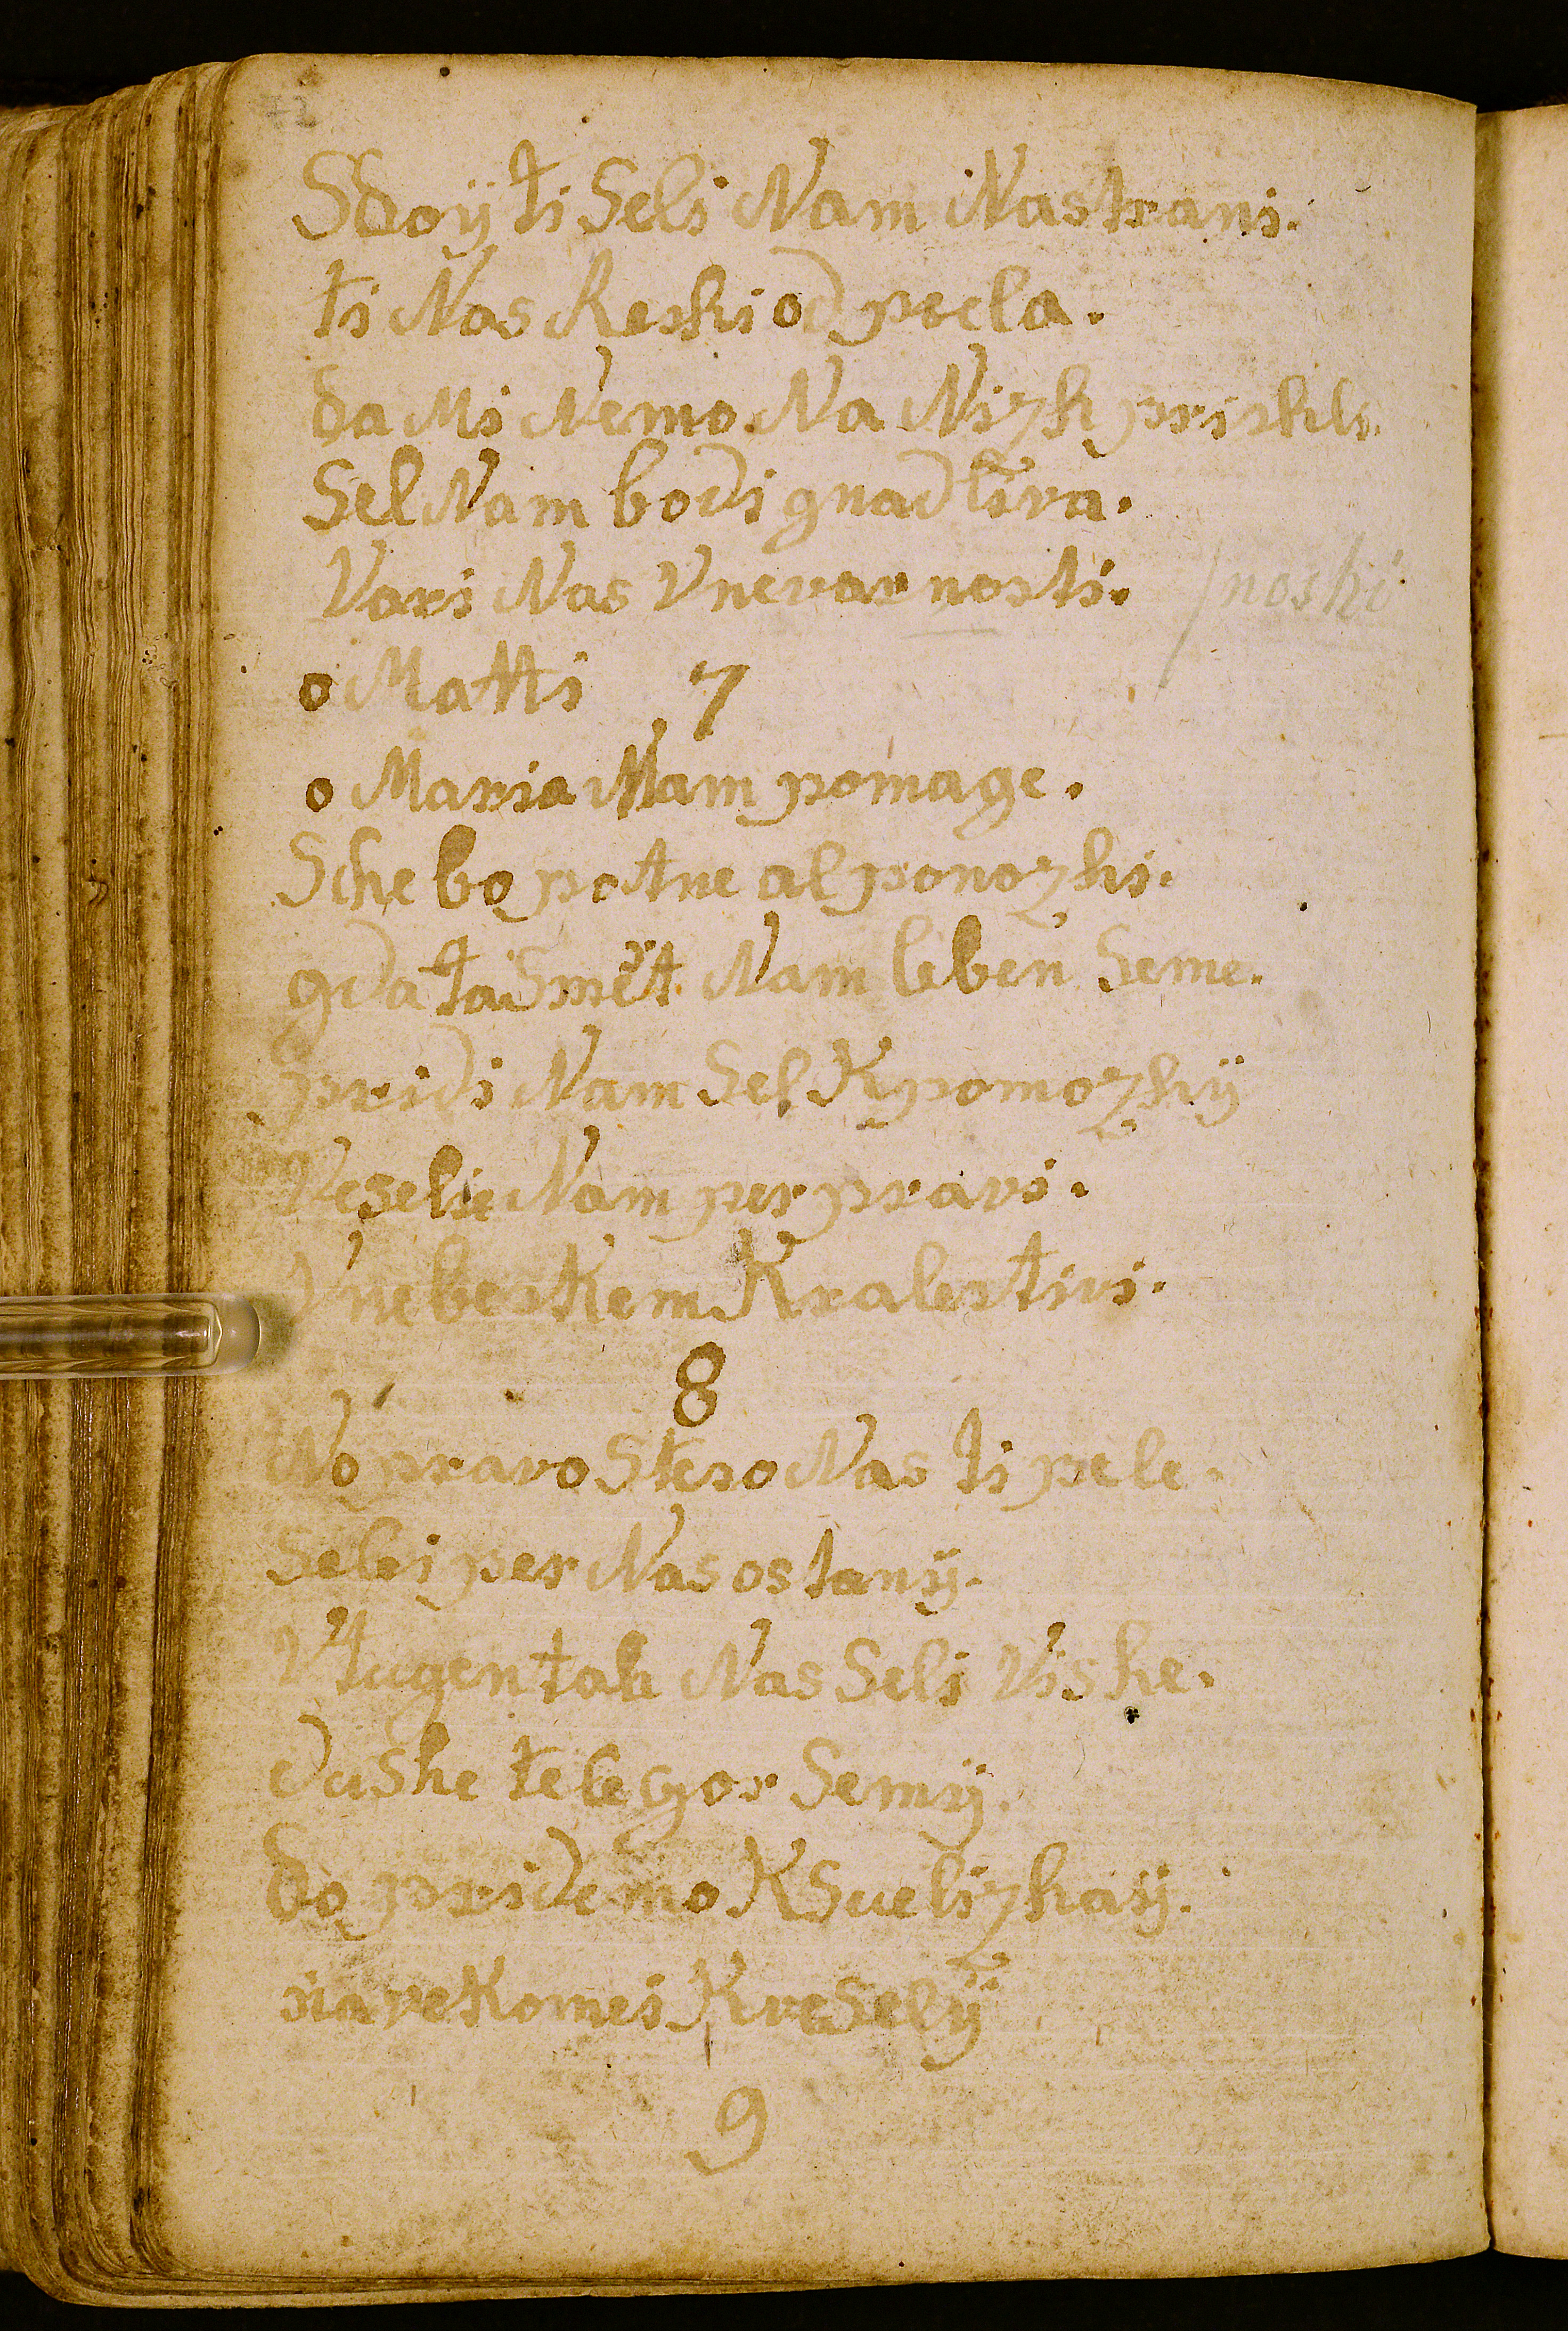 72
Sdoÿ ti Seli Nam Nastrani.
ti Nas Reshi od pecla.
da Mi Nemo Na Nizh prishli.
Sel Nam bodi gnadliva.
Vari Nas Vnevar nosti. /noshi
o Matti 7
o Maria Nam pomage.
Sche bo potne al ponozhi.
gda ta Smert Nam leben Seme.
pridi Nam Sel K pomozhÿ
Veselie Nam per pravi.
Vnebeskem Kralestivi.
8
No pravo Steso Nas ti pele.
Seli per Nas ostanÿ.
Vtugentah Nas Seli Vishe.
Dushe tele gor Semÿ.
do pridemo K Suelizhaÿ.
navekomei KveSelÿ
9